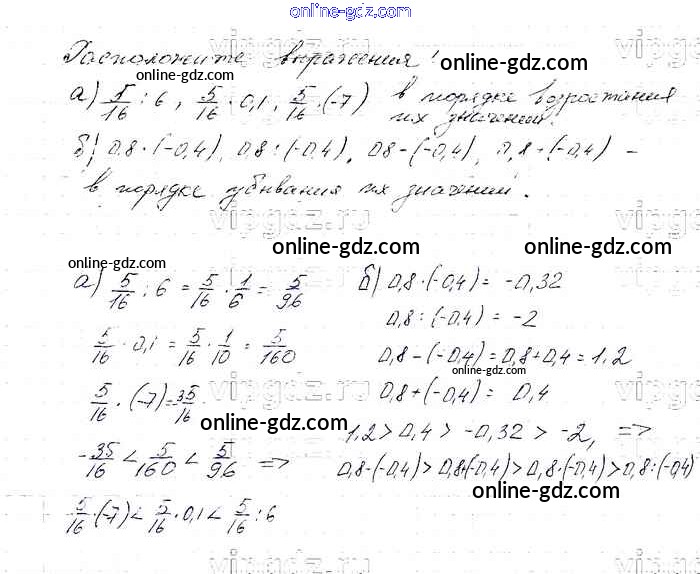 online-gdz.com
Расположите выражения:
а) 5/16 : 6, 5/16 · 0,1, 5/16 · (-7) в порядке возростания
их значений
б) 0,8 · (-0,4), 0,8 : (-0,4), 0,8 - (-0,4), 0,8 + (-0,4) -
в порядке убывания их значений.
а) 5/16 : 6 = 5/16 · 1/6 = 5/96
5/16 · 0,1 = 5/16 · 1/10 = 5/160
5/16 · (-7) = 35/16
-35/16 < 5/160 < 5/96 =>
5/16 · (-7) < 5/16 · 0,1 < 5/16 : 6
б) 0,8 · (-0,4) = -0,32
0,8 : (-0,4) = -2
0,8 - (-0,4) = 0,8 + 0,4 = 1,2
0,8 + (-0,4) = 0,4
1,2 > 0,4 > -0,32 > -2, =>
0,8 - (-0,4) > 0,8 + (-0,4) > 0,8 · (-0,4) > 0,8 : (-0,4)
online-gdz.com
online-gdz.com
online-gdz.com
online-gdz.com
online-gdz.com
online-gdz.com
online-gdz.com
online-gdz.com
vipgdz.ru
vipgdz.ru